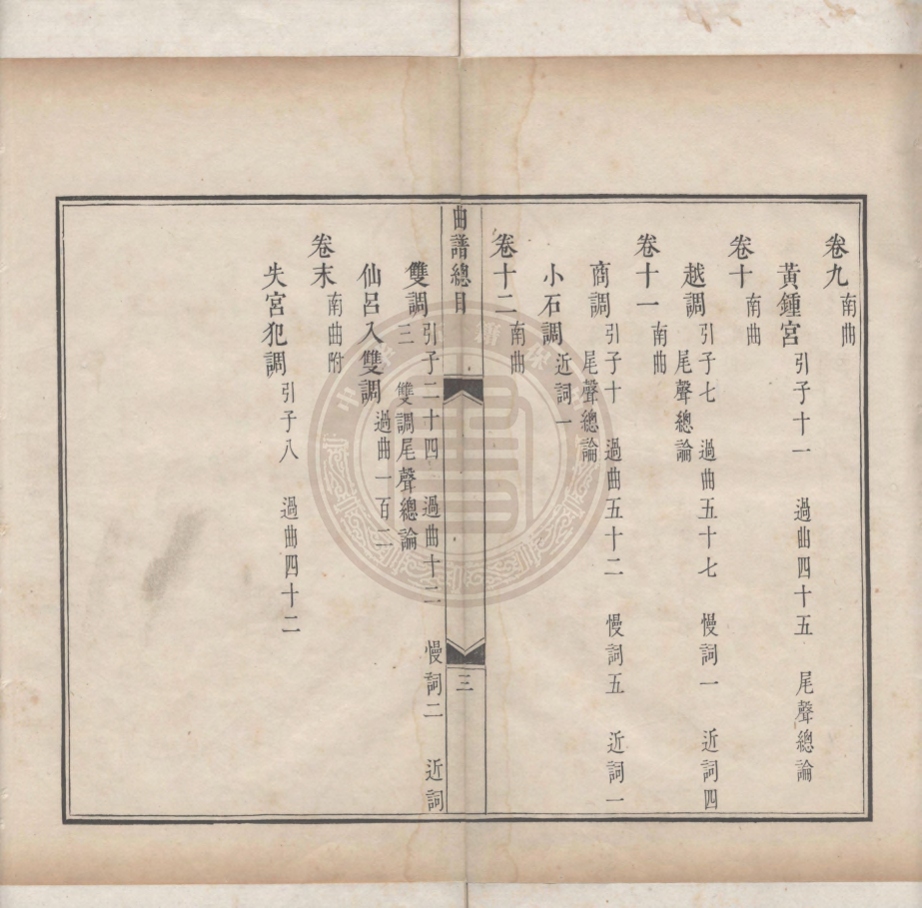 卷九 南曲
黃鍾宮 引子十一 過曲四十五 尾聲總論
卷十 南曲
越調 引子七 過曲五十七 慢詞一 近詞四
尾聲總論
卷十一 南曲
商調 引子十 過曲五十二 慢詞五 近詞一
尾聲總論
小石調 近詞一
卷十二 南曲
曲譜總目
三
雙調 引子二十四 過曲十二 慢詞二 近詞
三 雙調尾聲總論
仙呂入雙調 過曲一百二
卷末 南曲附
失宮犯調 引子八 過曲四十二